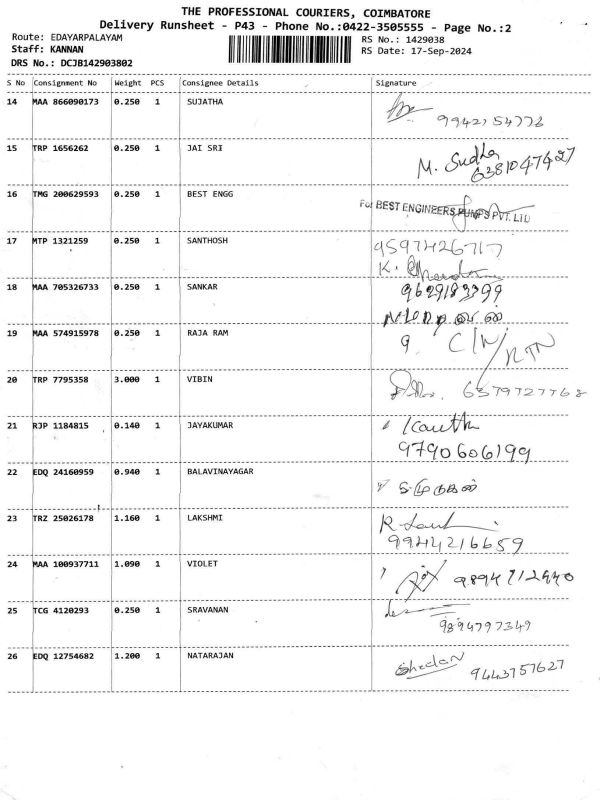 THE PROFESSIONAL COURIERS, COIMBATORE
Delivery Runsheet - P43 - Phone No.:0422-3505555 - Page No.:2
Route: EDAYARPALAYAM RS No.: 1429038
Staff: KANNAN RS Date: 17-Sep-2024
DRS No.: DCJB142903802
S No Consignment No Weight PCS Consignee Details Signature
14 MAA 866090173 0.250 1 SUJATHA
9942154776
15 TRP 1656262 0.250 1 JAI SRI M. Sudha
6381047427
16 TMG 200629593 0.250 1 BEST ENGG
For BEST ENGINEERS PUMPS PVT. LTD
17 MTP 1321259 0.250 1 SANTHOSH 9597426717
K.
18 MAA 705326733 0.250 1 SANKAR 9629183399
19 MAA 574915978 0.250 1 RAJA RAM 9 C/N/RTN
20 TRP 7795358 3.000 1 VIBIN 6379727768
21 RJP 1184815 0.140 1 JAYAKUMAR
9790606199
22 EDQ 24160959 0.940 1 BALAVINAYAGAR
23 TRZ 25026178 1.160 1 LAKSHMI
9944216659
24 MAA 100937711 1.090 1 VIOLET 9894712940
25 TCG 4120293 0.250 1 SRAVANAN
9894797349
26 EDQ 12754682 1.200 1 NATARAJAN 9443757627